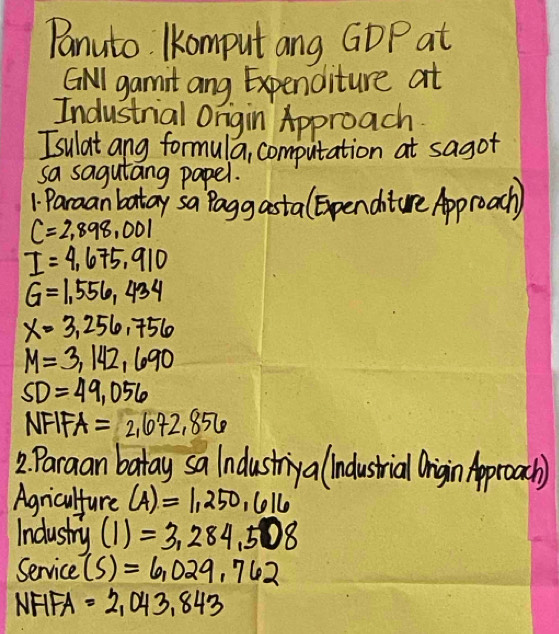 Panuto: Ikomput ang GDP at
GNI gamit ang Expenditure at
Industrial Origin Approach.
Isulat ang formula, computation at sagot
sa sagutang papel.
1. Paraan batay sa Paggasta (Expenditure Approach)
C = 2,898,001
I = 4,675,910
G = 1,556,434
X = 3,256,756
M = 3,142,690
SD = 49,056
NFIFA = 2,672,856
2. Paraan batay sa Industriya (Industrial Origin Approach)
Agriculture (A) = 1,250,616
Industry (I) = 3,284,508
Service (S) = 6,029,762
NFIFA = 2,043,843